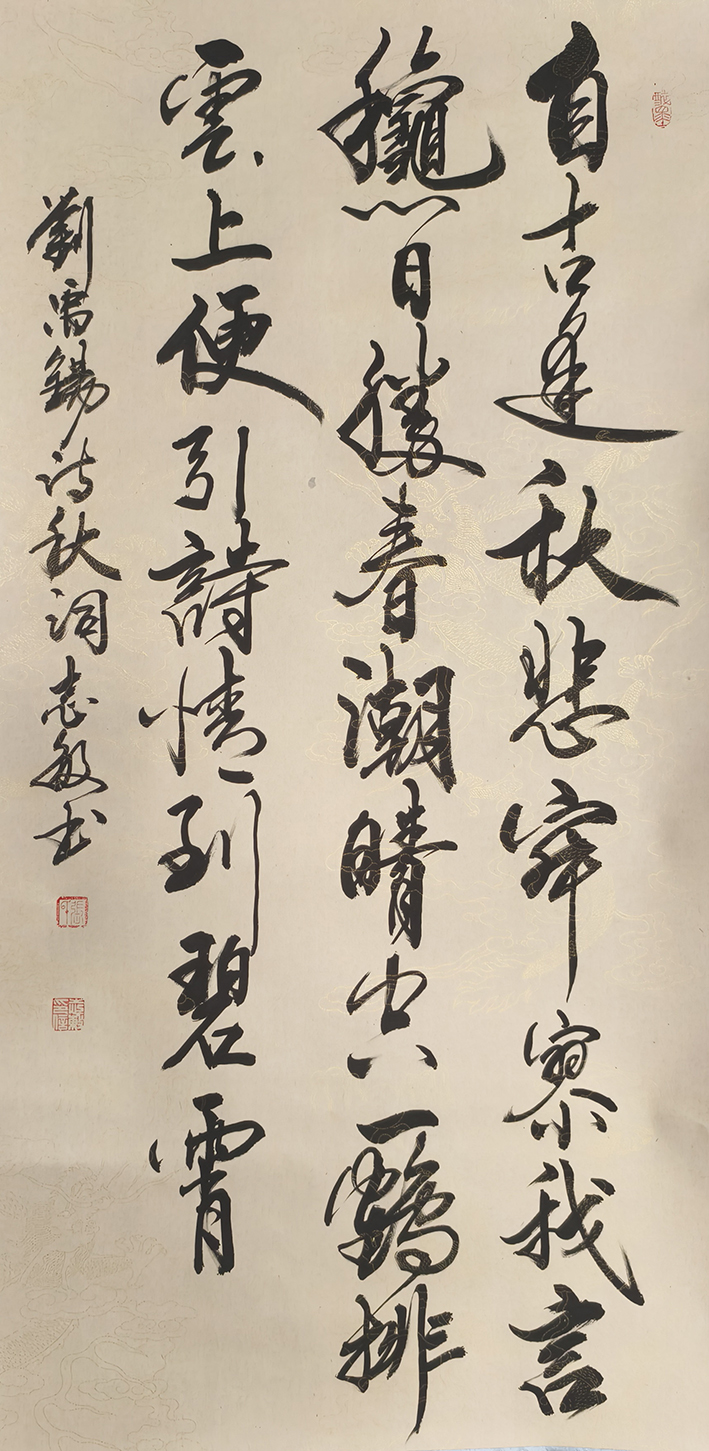 自古逢秋悲寂寥我言
龝日勝春潮晴空一鶴排
雲上便引詩情到碧霄
劉禹錫诗秋词志敏书